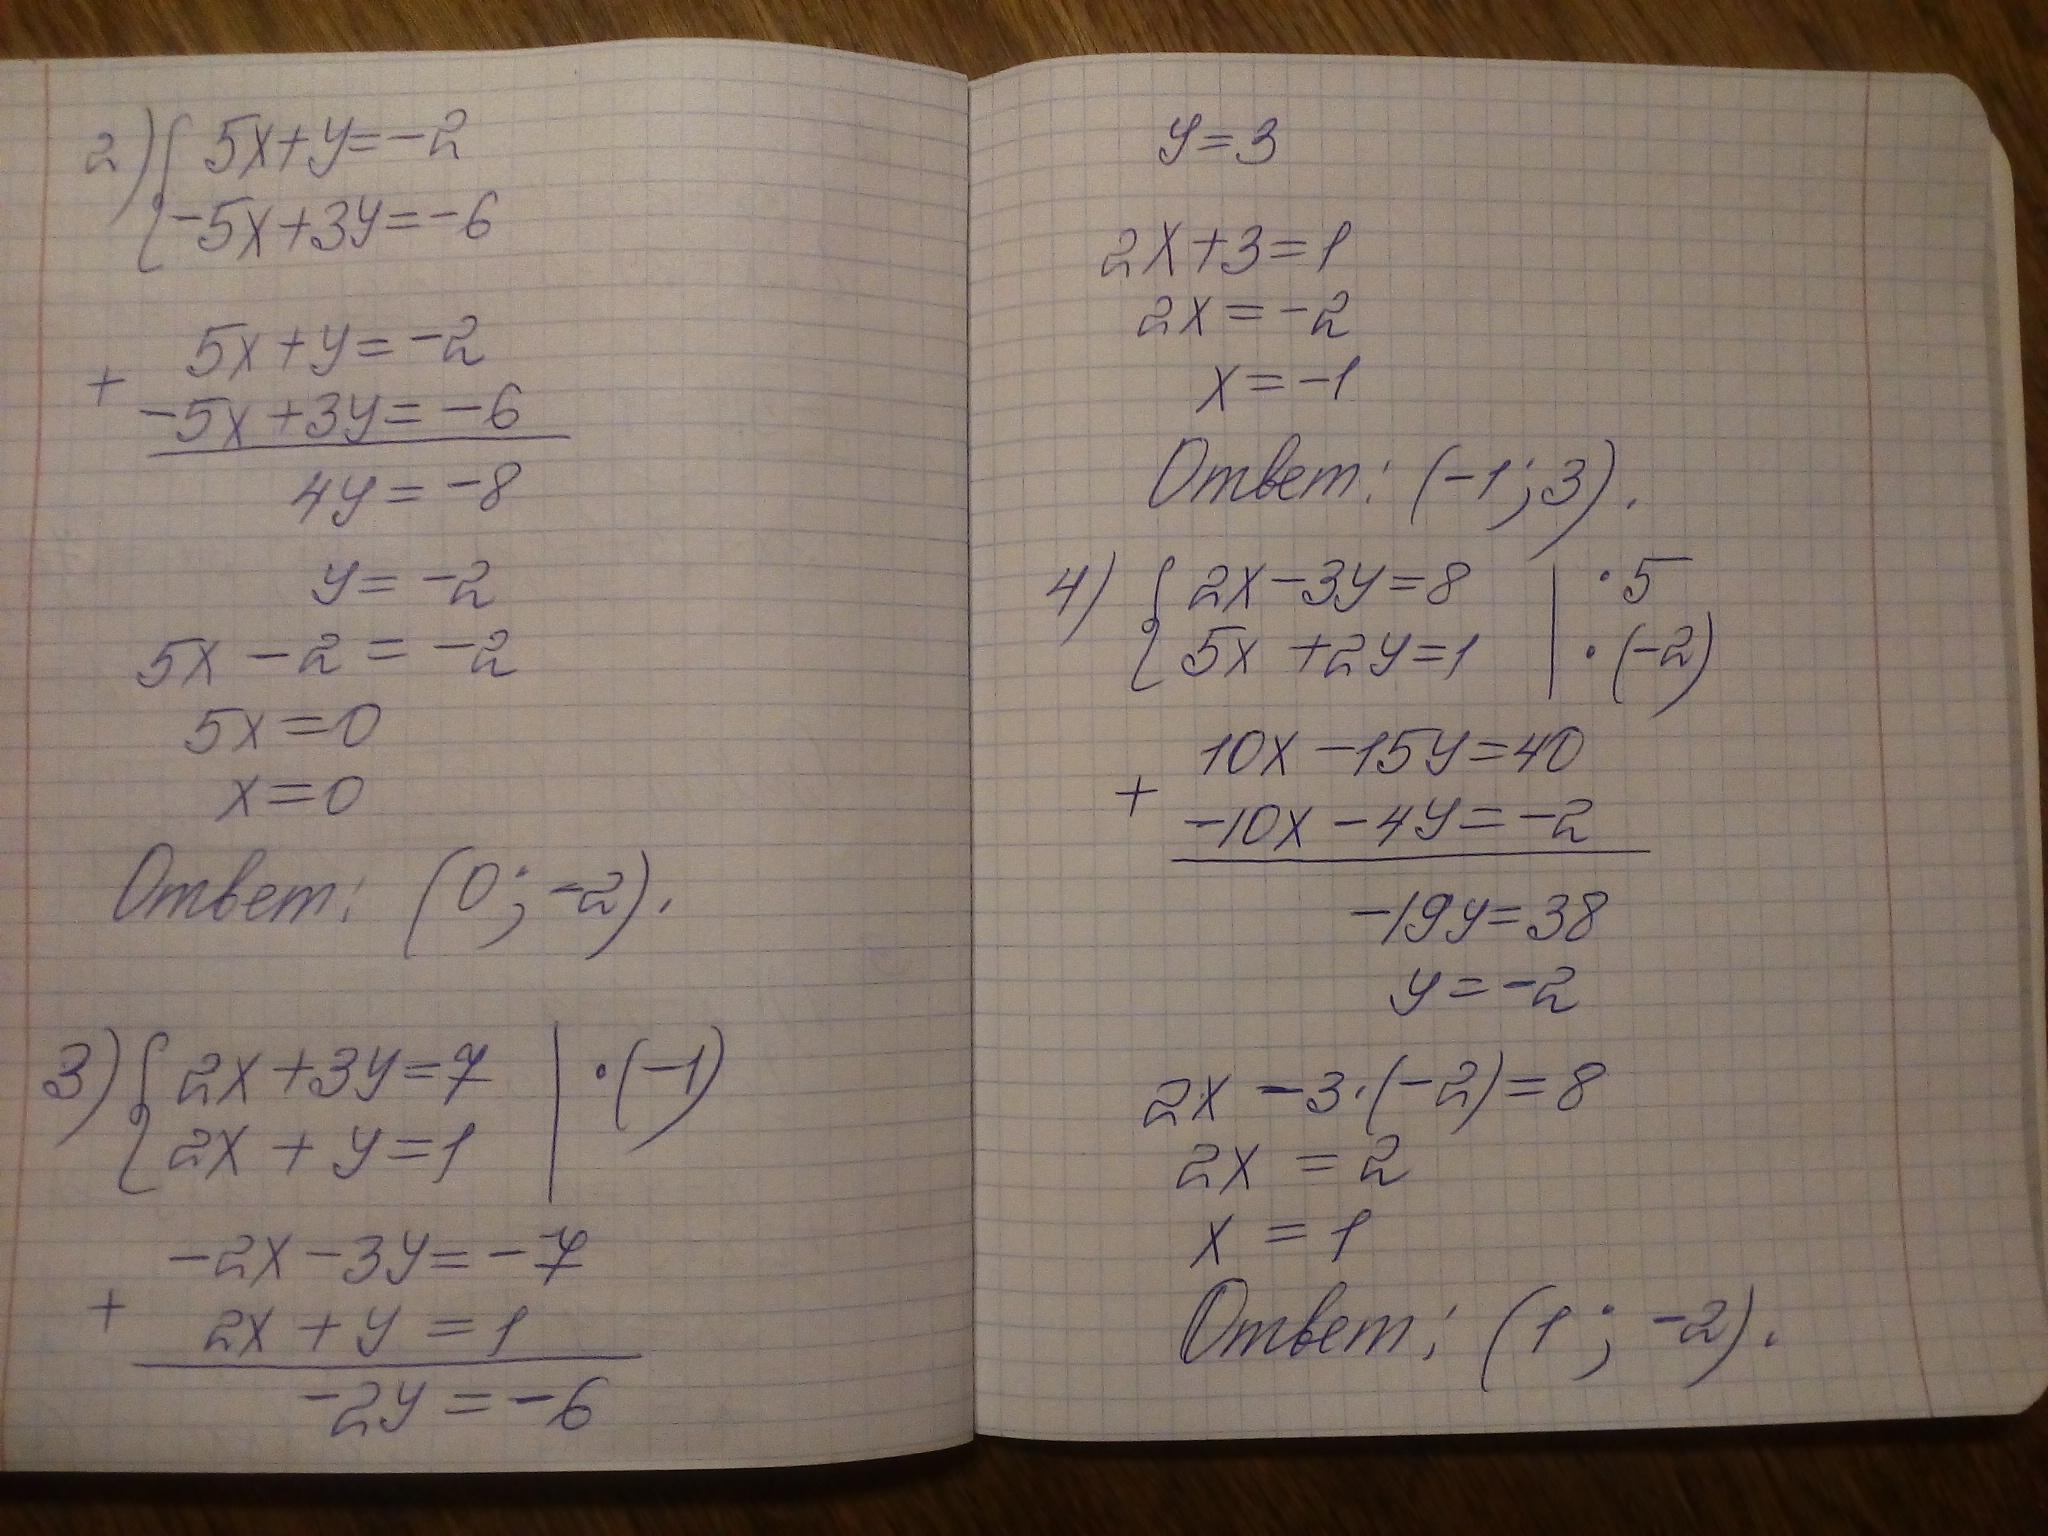 2) { 5x+y=-2
-5x+3y=-6
5x+y=-2
+
-5x+3y=-6
4y=-8
y=-2
5x-2=-2
5x=0
x=0
Ответ: (0; -2).
3) { 2x+3y=7 | ·(-1)
2x+y=1
-2x-3y=-7
+
2x+y=1
-2y=-6
y=3
2x+3=1
2x=-2
x=-1
Ответ: (-1; 3).
4) { 2x-3y=8 | ·5
5x+2y=1 | ·(-2)
10x-15y=40
+
-10x-4y=-2
-19y=38
y=-2
2x-3·(-2)=8
2x=2
x=1
Ответ: (1; -2).